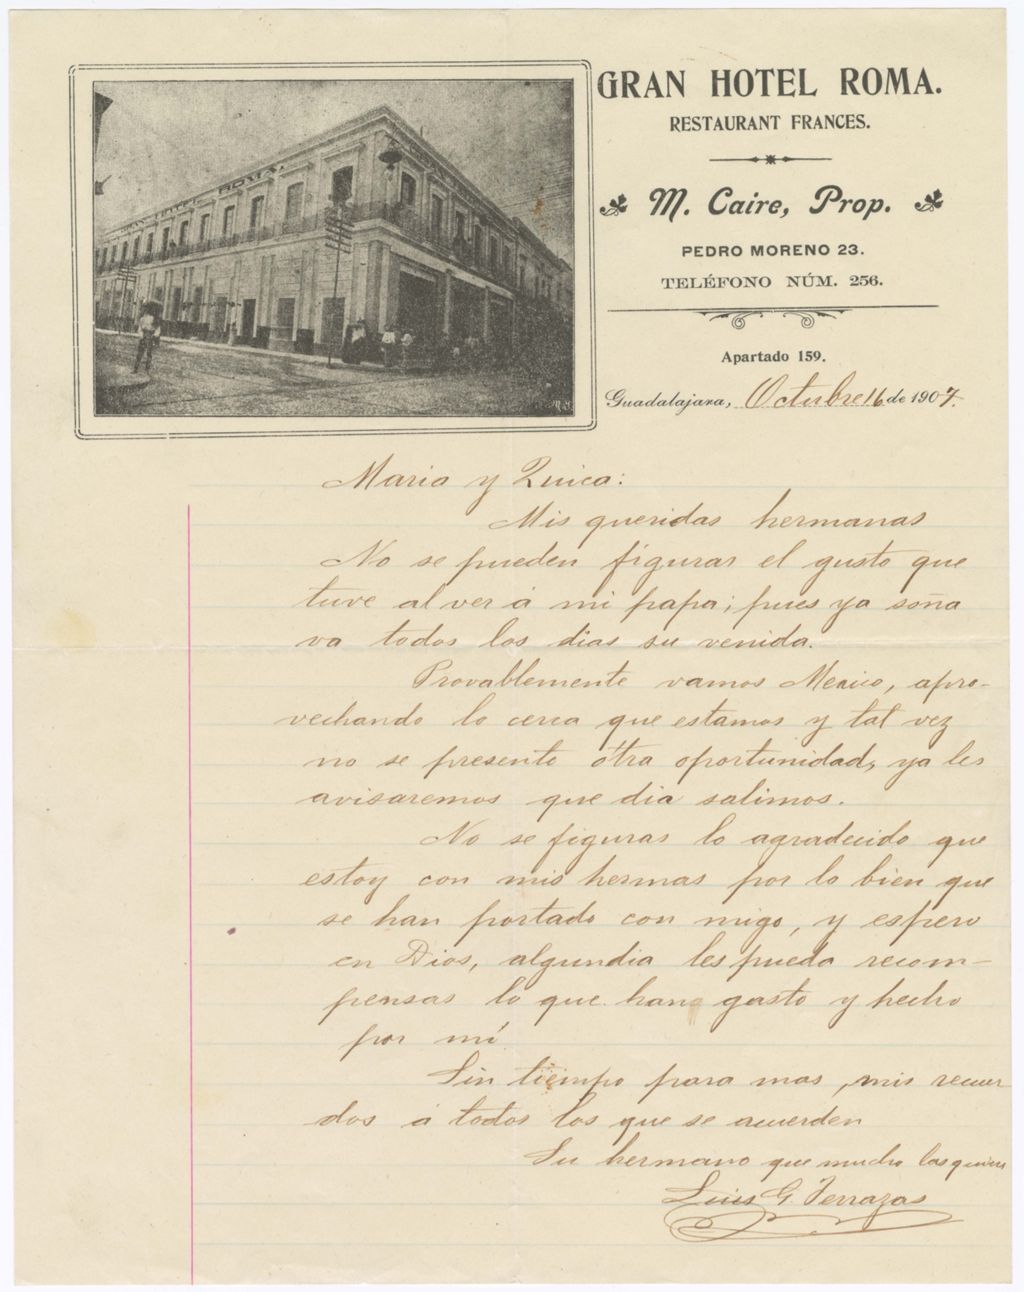 GRAN HOTEL ROMA.
RESTAURANT FRANCES.
M. Caire, Prop.
PEDRO MORENO 23.
TELÉFONO NÚM. 256.
Apartado 159.
Guadalajara, Octubre 16 de 1907.
Maria y Quica:
Mis queridas hermanas
No se pueden figurar el gusto que
tuve al ver á mi papa; pues ya soña
va todos los dias su venida.
Provablemente vamos Mexico, apro-
vechando lo cerca que estamos y tal vez
no se presente ótra oportunidad, ya les
avisaremos que dia salimos.
No se figuras lo agradecido que
estoy con mis hermas por lo bien que
se han portado con migo, y espero
en Dios, algundia les pueda recom-
pensas lo que han gasto y hecho
por mí
Sin tiempo para mas, mis recuer
dos á todos los que se acuerden
Su hermano que mucho las quiere
Luis G. Terrazas